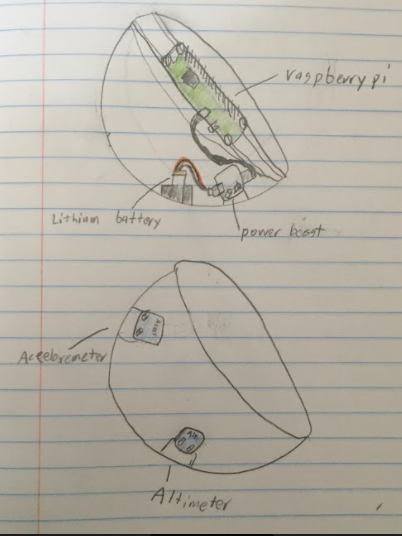 raspberry pi
Lithium battery
power boost
Accelerometer
Altimeter